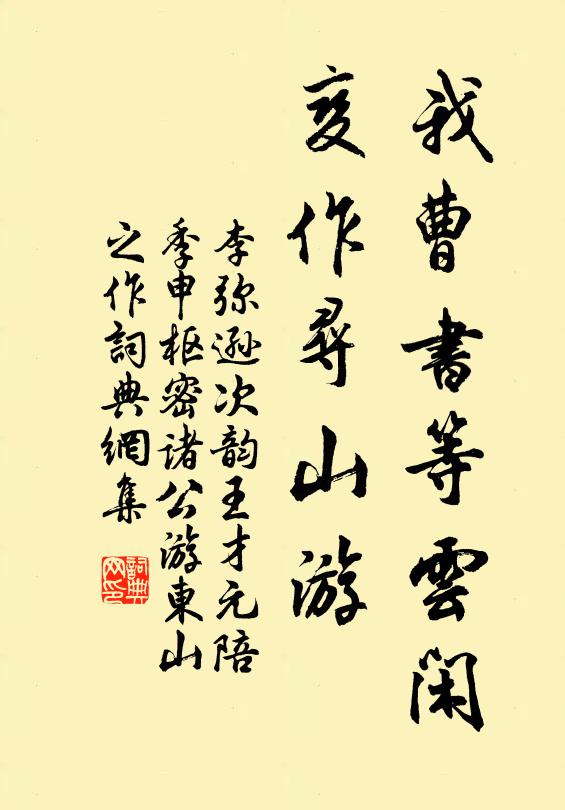 我曹書等雲閑
变作尋山游
李弥遜次韵王才元陪
季申枢密诸公游東山
之作詞典網集
詞典
网印